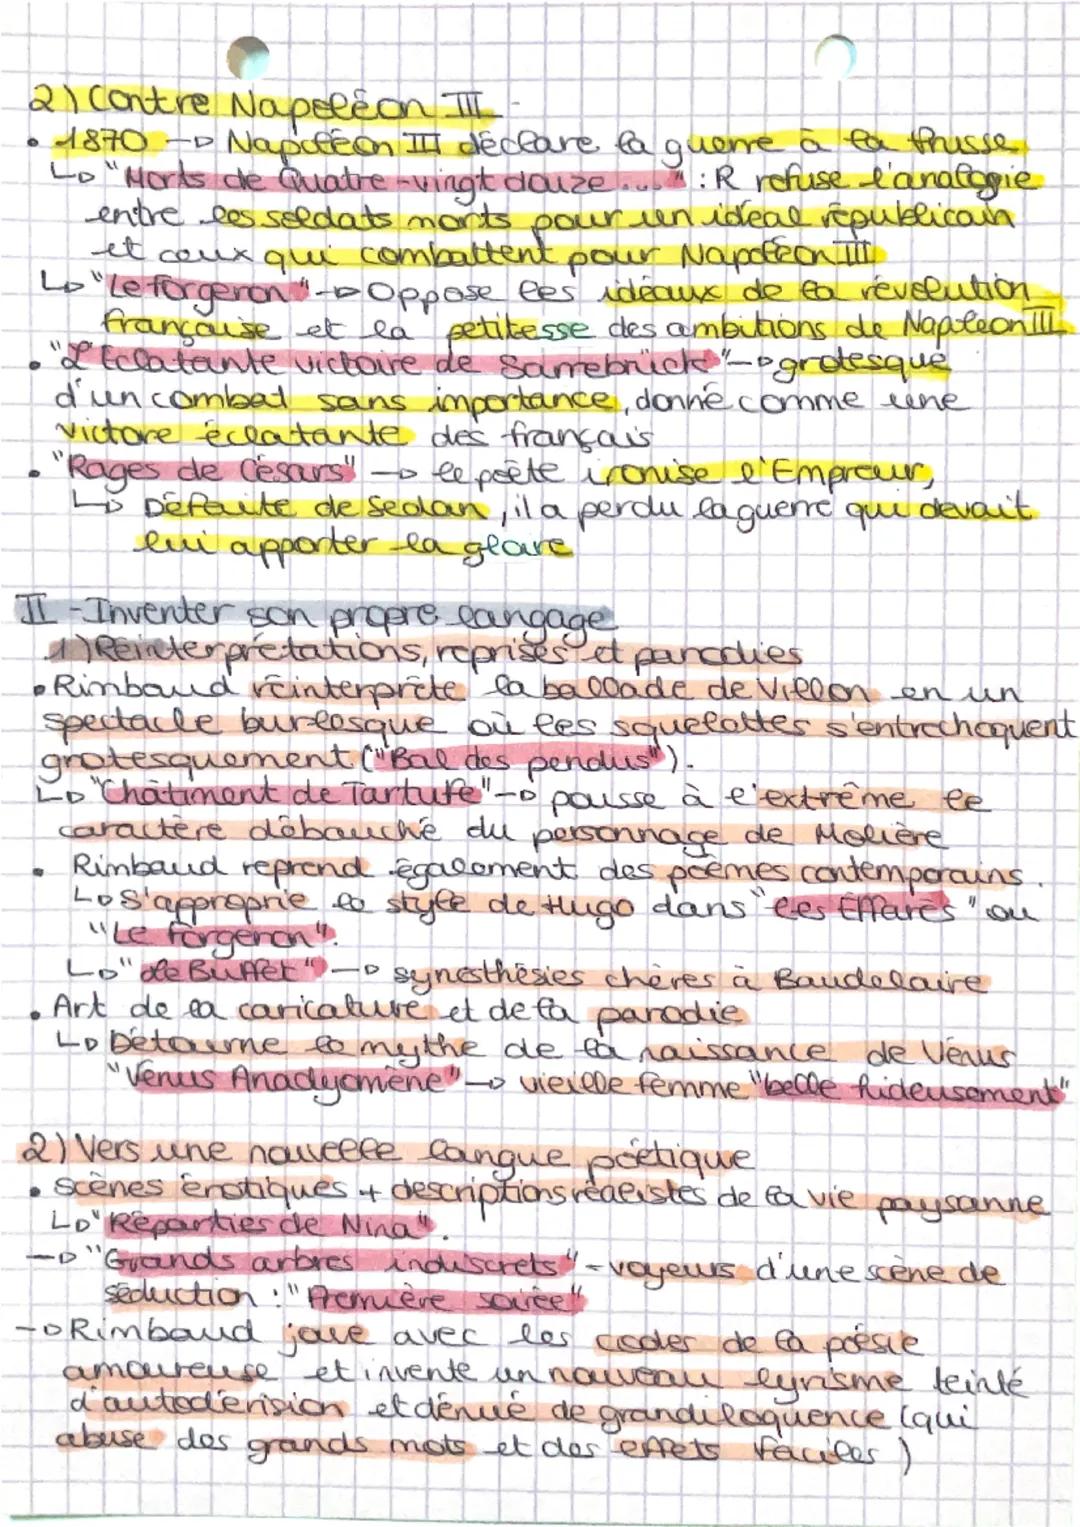 2) Contre Napoléon III
• 1870 → Napoléon III déclare la guerre à la Prusse
↳ "Morts de Quatre-vingt douze..." : R refuse l'analogie
entre les soldats morts pour un idéal républicain
et ceux qui combattent pour Napoléon III
↳ "Le forgeron" → Oppose les idéaux de la révolution
française et la petitesse des ambitions de Napoléon III
• "L'Eclatante victoire de Sarrebrück" → grotesque
d'un combat sans importance, donné comme une
victore éclatante des français
• "Rages de Césars" → le poète ironise l'Empreur,
↳ Défaite de Sedan, il a perdu la guerre qui devait
lui apporter la gloire
II - Inventer son propre langage
1) Réinterprétations, reprises et parodies
• Rimbaud réinterprète la ballade de Villon en un
spectacle burlesque où les squelettes s'entrechoquent
grotesquement ("Bal des pendus").
↳ "Châtiment de Tartufe" → pousse à l'extrême le
caractère débauché du personnage de Molière
• Rimbaud reprend également des poèmes contemporains.
↳ S'approprie le style de Hugo dans "les Effarés" ou
"Le forgeron".
↳ "Le Buffet" → synesthésies chères à Baudelaire
• Art de la caricature et de la parodie
↳ Détourne le mythe de la naissance de Vénus
"Vénus Anadyomène" → vieille femme "belle hideusement"
2) Vers une nouvelle langue poétique
• scènes érotiques + descriptions réalistes de la vie paysanne
↳ "Réparties de Nina".
→ "Grands arbres indiscrets" - voyeurs d'une scène de
séduction : "Première soirée"
→ Rimbaud joue avec les codes de la poésie
amoureuse et invente un nouveau lyrisme teinté
d'autodérision et dénué de grandiloquence (qui
abuse des grands mots et des effets faciles)